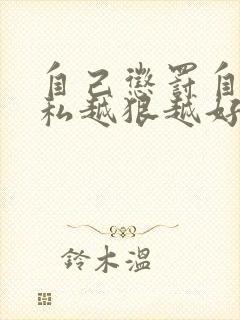 自己惩罚自
私越狠越好
鈴木溫